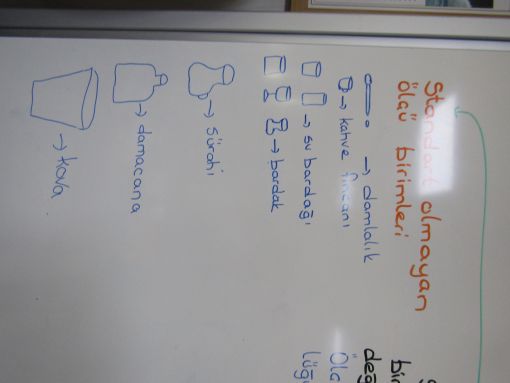 Standart olmayan
ölçü birimleri
→ damlalık
→ kahve fincanı
→ su bardağı
→ bardak
→ sürahi
→ damacana
→ kova
bir
değ
Ölç
lüğü